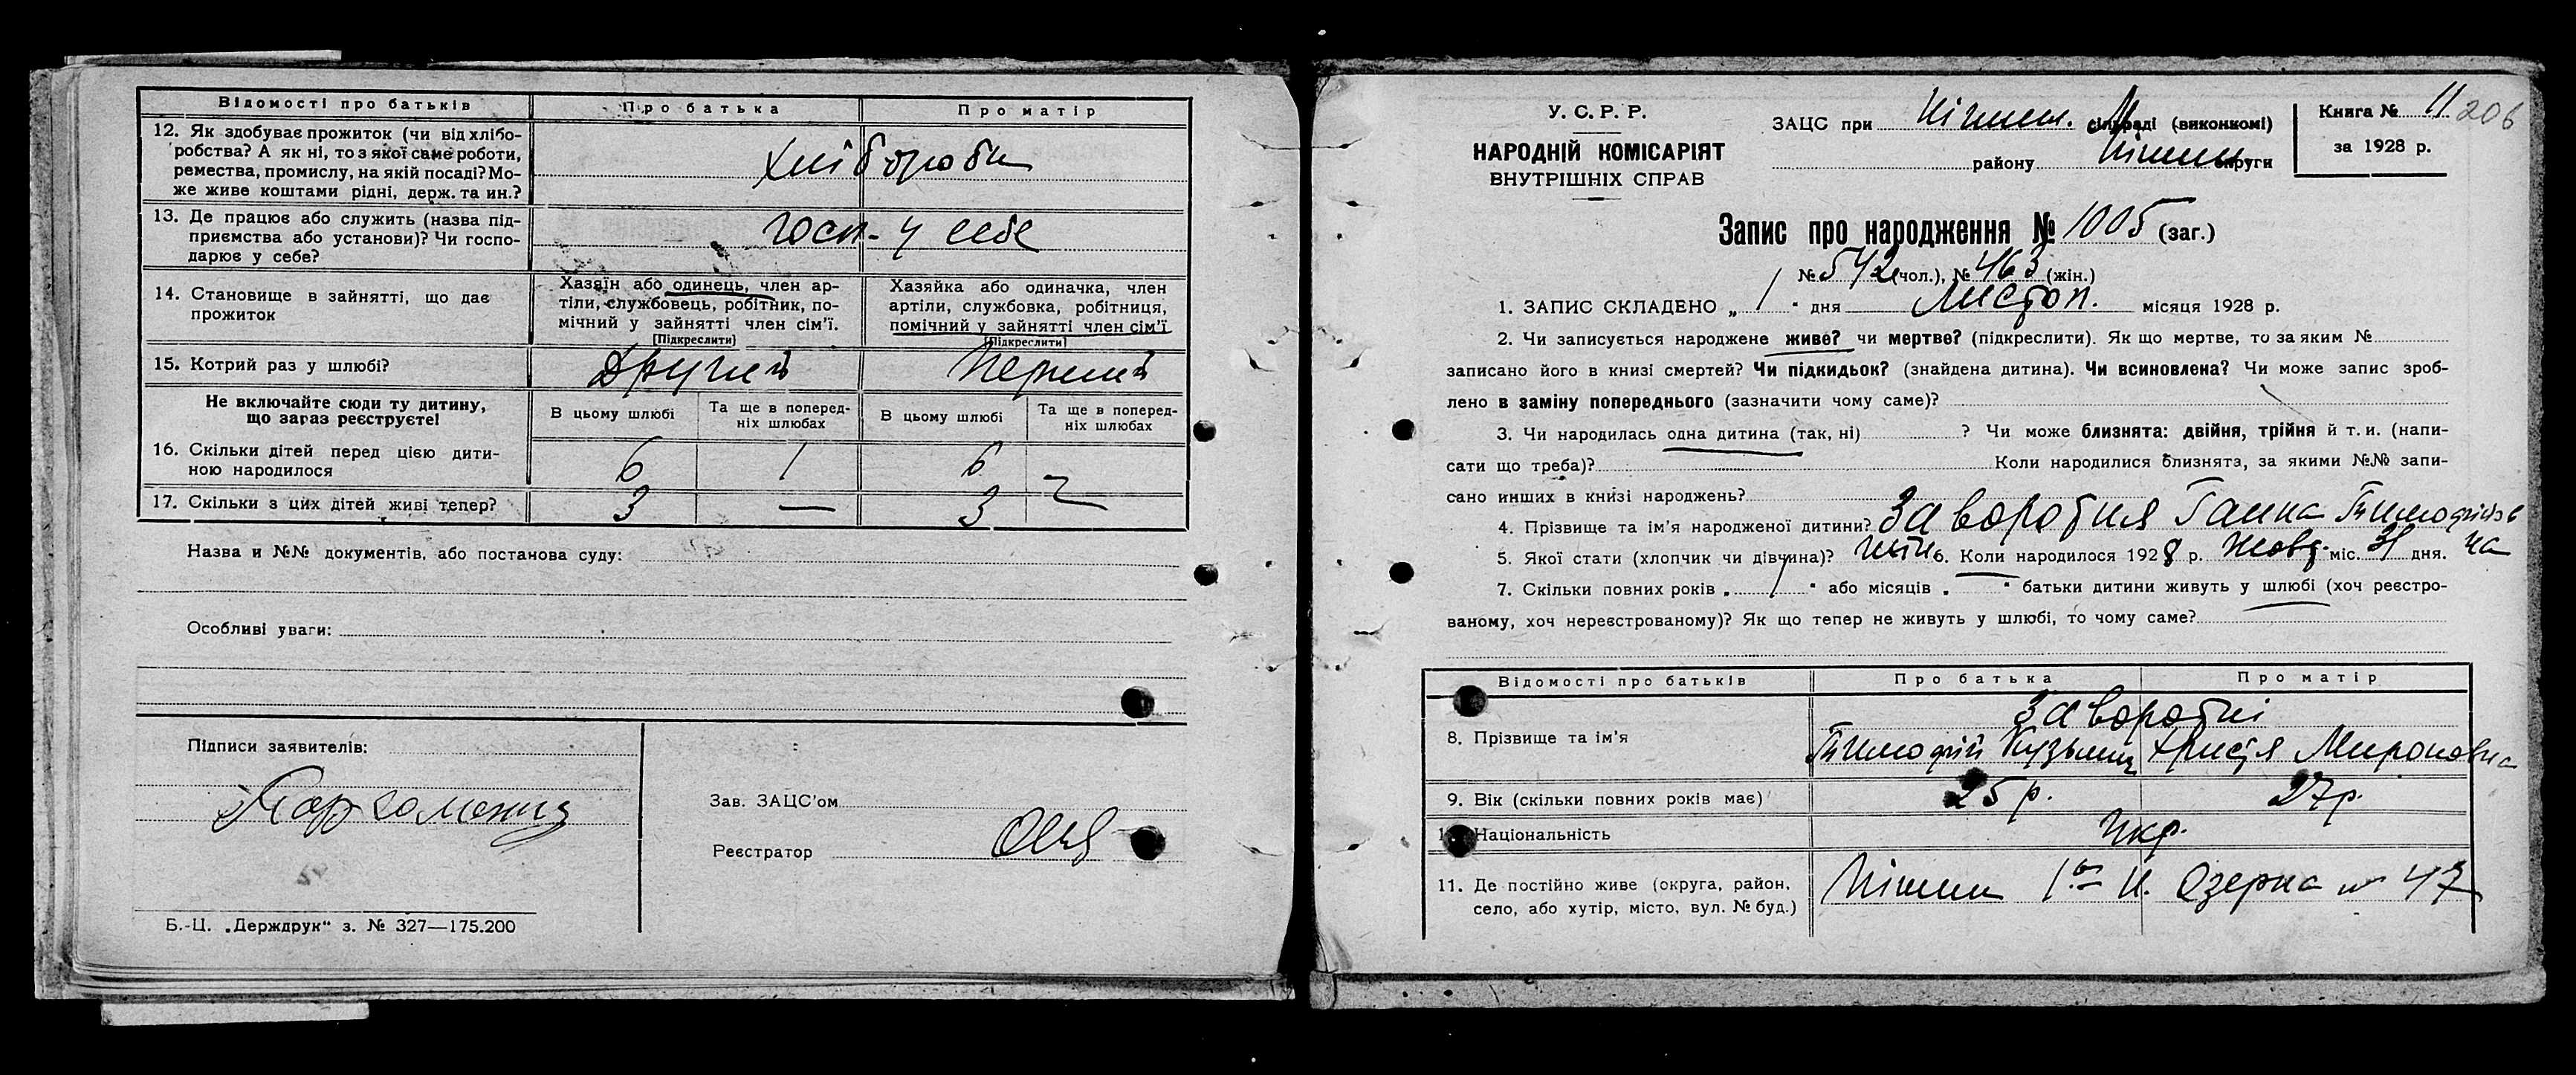 Відомості про батьків Про батька Про матір
12. Як здобуває прожиток (чи від хлібо-
робства? А як ні, то з якої саме роботи,
ремества, промислу, на якій посаді? Мо-
же живе коштами рідні, держ. та ин.?
хлібороби
13. Де працює або служить (назва під-
приємства або установи)? Чи госпо-
дарює у себе?
госп. у себе
14. Становище в зайнятті, що дає
прожиток
Хазяїн або одинець, член ар-
тіли, службовець, робітник, по-
мічний у зайнятті член сім'ї.
[Підкреслити]
Хазяйка або одиначка, член
артіли, службовка, робітниця,
помічний у зайнятті член сім'ї
[Підкреслити]
15. Котрий раз у шлюбі? Другий Перший
Не включайте сюди ту дитину,
що зараз реєструєте!
В цьому шлюбі Та ще в поперед-
ніх шлюбах В цьому шлюбі Та ще в поперед-
ніх шлюбах
16. Скільки дітей перед цією дити-
ною народилося 6 1 6
17. Скільки з цих дітей живі тепер? 3 — 3 —
Назва и №№ документів, або постанова суду:
Особливі уваги:
Підписи заявителів:
Зав. ЗАЦС'ом
Реєстратор
Б.-Ц. „Держдрук“ з. № 327—175.200
У. С. Р. Р.
НАРОДНІЙ КОМІСАРІЯТ
ВНУТРІШНІХ СПРАВ
ЗАЦС при Ніжин. М сільраді (виконкомі)
району Ніжин округи
Книга № 11 206
за 1928 р.
Запис про народження № 1005 (заг.)
№ 542 (чол.), № 463 (жін.)
1. ЗАПИС СКЛАДЕНО „ 1 “ дня Листоп. місяця 1928 р.
2. Чи записується народжене живе? чи мертве? (підкреслити). Як що мертве, то за яким №
записано його в книзі смертей? Чи підкидьок? (знайдена дитина). Чи всиновлена? Чи може запис зроб-
лено в заміну попереднього (зазначити чому саме)?
3. Чи народилась одна дитина (так, ні) ? Чи може близнята: двійня, трійня й т. и. (напи-
сати що треба)? Коли народилися близнята, за якими №№ запи-
сано инших в книзі народжень?
4. Прізвище та ім'я народженої дитини? Заворотня Ганна Тимофіїв
на
5. Якої стати (хлопчик чи дівчина)? жін 6. Коли народилося 1928 р. Жовт. міс. 31 дня.
7. Скільки повних років „ 1 “ або місяців „ “ батьки дитини живуть у шлюбі (хоч реєстро-
ваному, хоч нереєстрованому)? Як що тепер не живуть у шлюбі, то чому саме?
Відомості про батьків Про батька Про матір
8. Прізвище та ім'я
Заворотні
Тимофій Кузьмич Христя Мироновна
9. Вік (скільки повних років має) 25 р. 27 р.
Національність Укр.
11. Де постійно живе (округа, район,
село, або хутір, місто, вул. № буд.)
Ніжин Озерна № 47